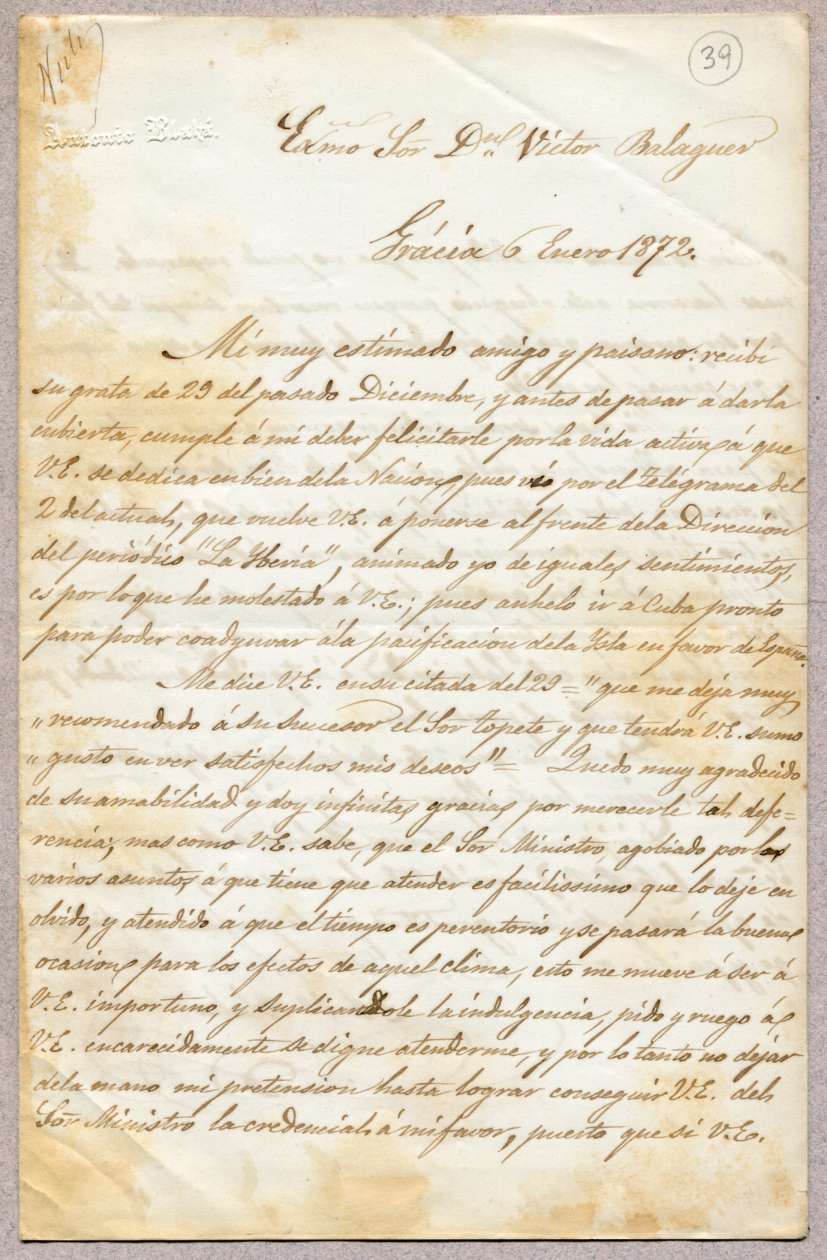 39
Antonio
Exmo Sor Dn Victor Balaguer
Grácia 6 Enero 1872.
Mi muy estimado amigo y paisano: recibí
su grata de 29 del pasado Diciembre, y antes de pasar á darla
cubierta, cumple á mi deber felicitarle por la vida activa á que
V.E. se dedica en bien de la Nacion, pues vio por el telégrama del
2 del actual, que vuelve V.E. á ponerse al frente de la Direccion
del periódico "La Iberia", animado yo de iguales sentimientos,
es por lo que he molestado á V.E.; pues anhelo ir á Cuba pronto
para poder coadyuvar á la pacificacion de la Isla en favor de España.
Me dice V.E. en su citada del 29 = "que me deja muy
"recomendado á su sucesor el Sor Topete y que tendrá V.E. sumo
"gusto en ver satisfechos mis deseos" = Quedo muy agradecido
de su amabilidad y doy infinitas gracias por merecerle tal defe=
rencia; mas como V.E. sabe, que el Sor Ministro, agobiado por los
varios asuntos á que tiene que atender es facilissimo que lo deje en
olvido, y atendido á que el tiempo es perentorio y se pasará la buena
ocasion para los efectos de aquel clima, esto me mueve á ser á
V.E. importuno, y suplicandole la indulgencia, pido y ruego á
V.E. encarecidamente se digne atenderme, y por lo tanto no dejar
de la mano mi pretension hasta lograr conseguir V.E. del
Sor Ministro la credencial á mi favor, puesto que si V.E.